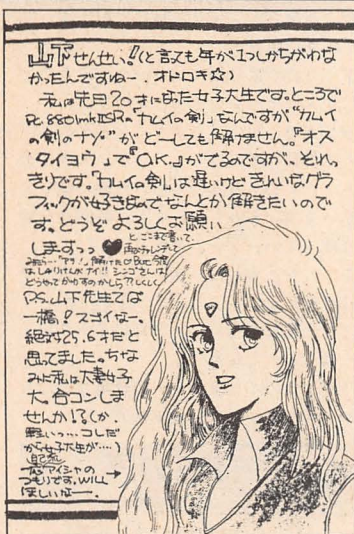 山下せんせい!(と言っても年が1つしかちがわな
かったんですねー.オドロキ☆)
私は先日20才になった女子大生です。ところで
Pc-8801mkⅡSRの「カムイの剣」なんですが“カムイ
の剣のナゾ”がどーしても解けません。『オス
タイヨウ』で『O.K.』がでるのですが、それっ
きりです。「カムイの剣」は遅いけどきれいなグラ
フィックが好きなのでなんとか解きたいので
す。どうぞよろしくお願い
しますっっ♥
とここまで書いて、
再びチャレンジして
みたら…「アラ!」解けた
はしゅりけんがナイ!!シンゴさんは
どうやってかわすのかしら??しくしく
P.S.山下先生てば
一橋!?スゴイなー。
絶対25.6才だと
思ってました。ちな
みに私は大妻女子
大。合コンしま
せんか!?(か.
軽いっ…コレだ
から女子大生が…)
アイシャの→
つもりです。WILL
ほしいなー.